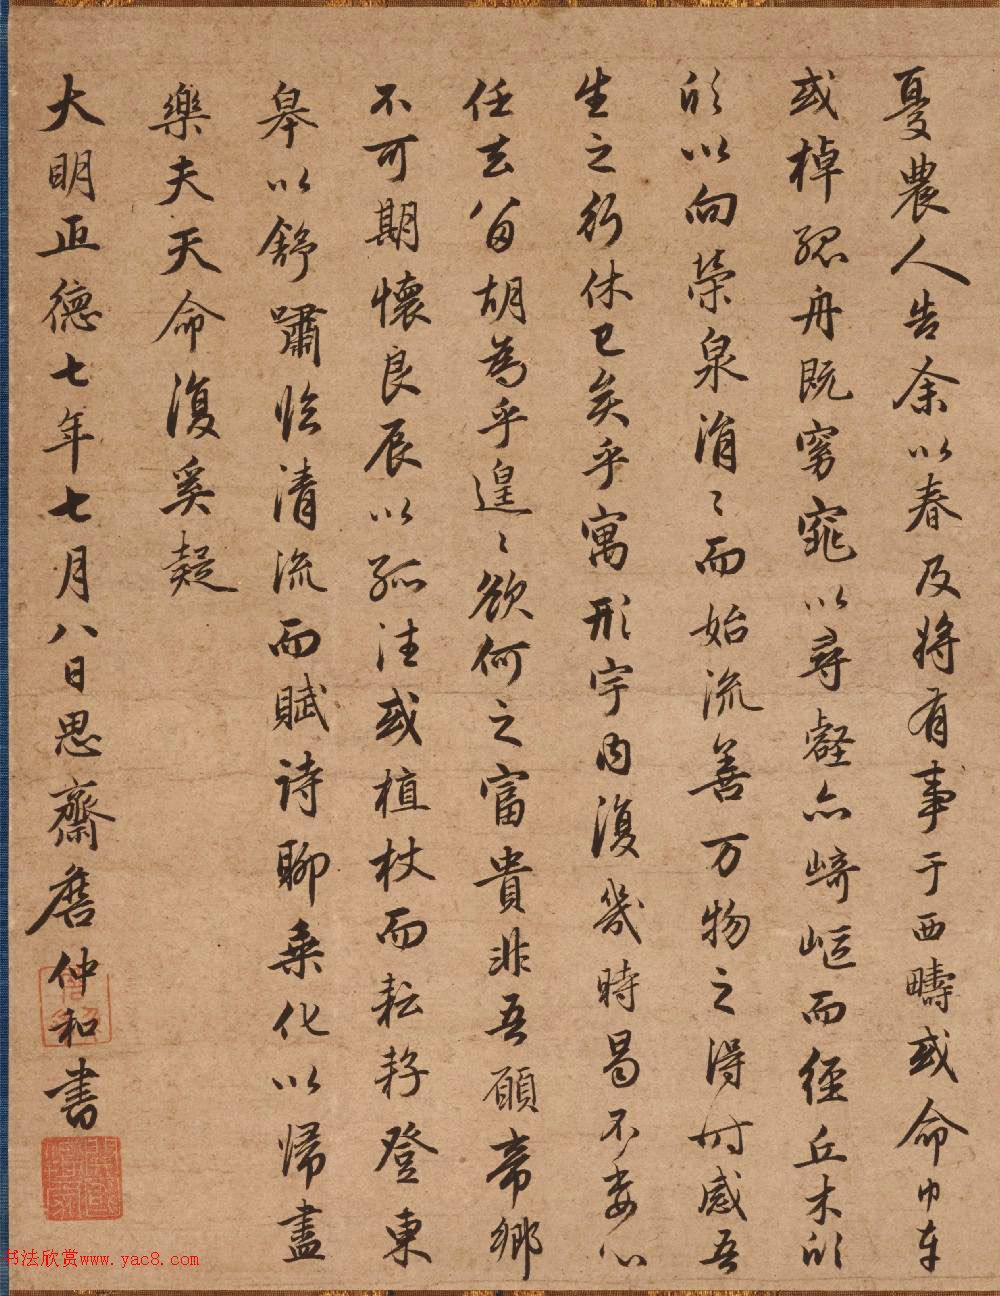 憂農人告余以春及將有事于西疇或命巾車
或棹孤舟既窈窕以尋壑亦崎嶇而經丘木欣
欣以向榮泉涓〻而始流善万物之得时感吾
生之行休已矣乎寓形宇內復幾時曷不委心
任去留胡為乎遑〻欲何之富貴非吾願帝鄉
不可期懷良辰以孤往或植杖而耘耔登東
皋以舒嘯臨清流而賦詩聊乘化以歸盡
樂夫天命復奚疑
大明正德七年七月八日思齋詹仲和書
书法欣赏www.yac8.com